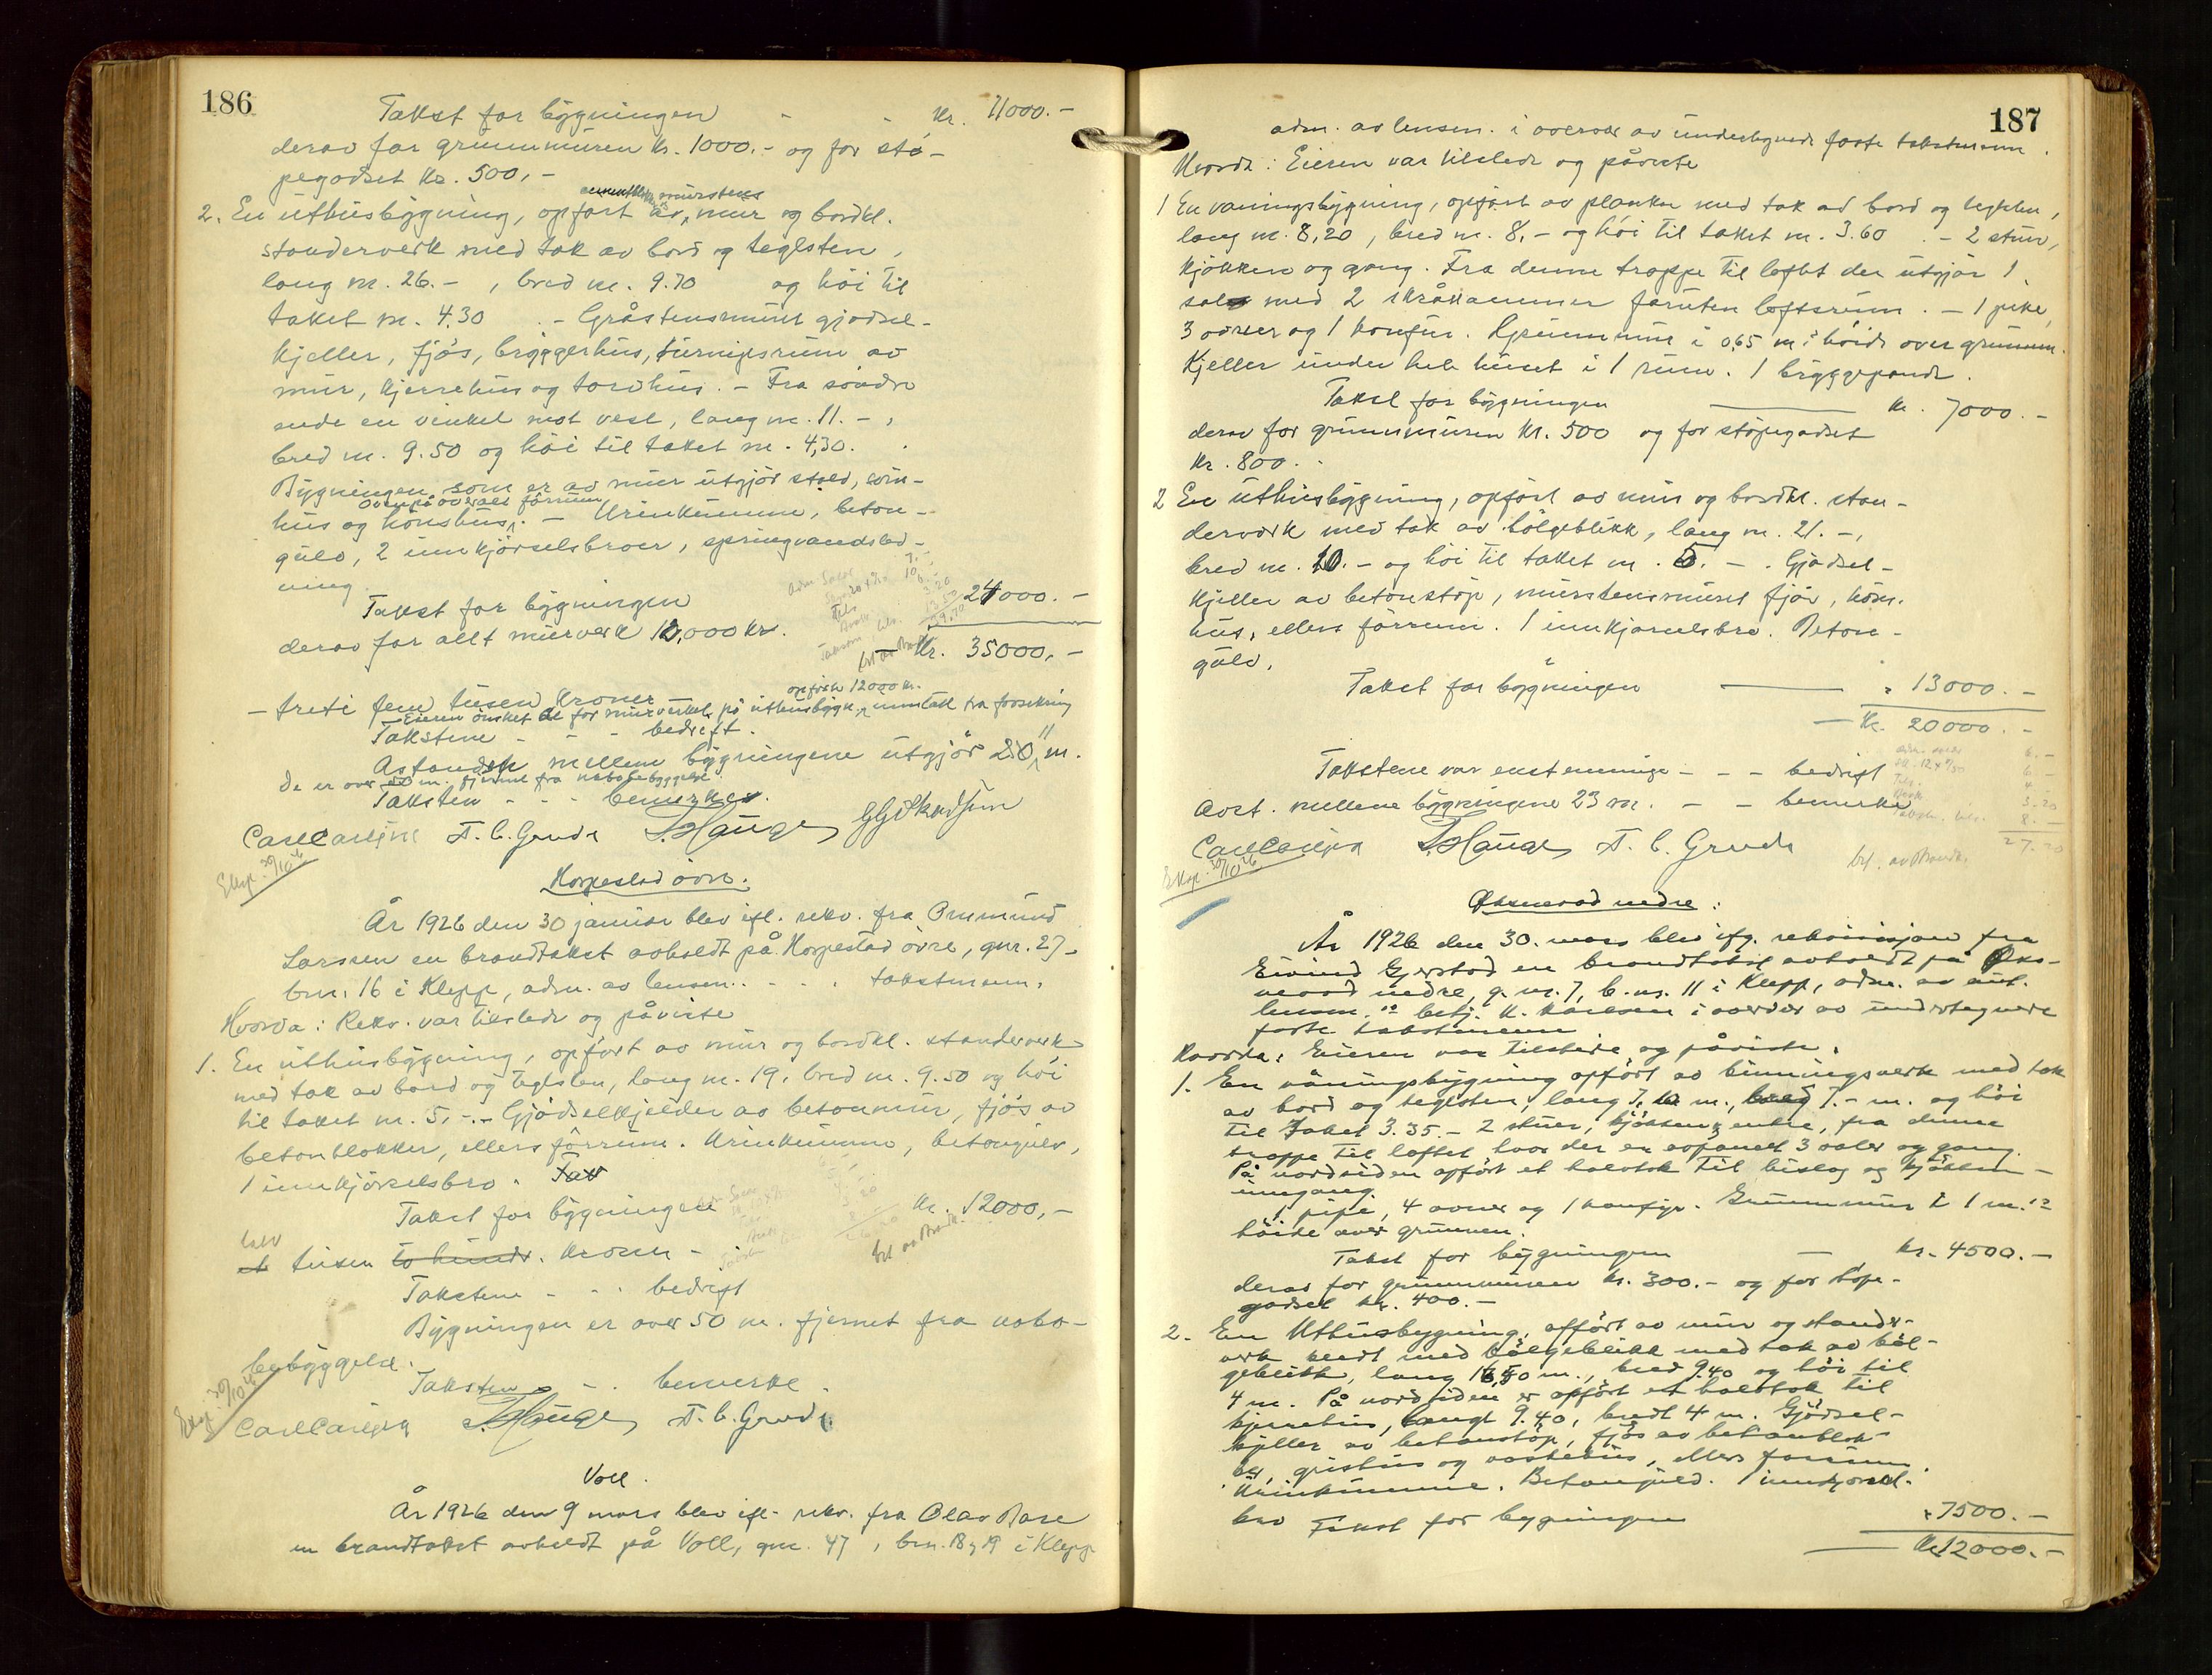 186
Takst for bygningen - - kr. 11000.-
derav for grunnmuren kr. 1000.- og for stø-
pegodset kr. 500,-
murstens
2. En uthusbygning, opført av mur og bordkl.
standerverk med tak av bord og teglsten,
lang m. 26.- , bred m. 9.70 og høi til
taket m. 4,30 . - Gråstensmuret gjødsel-
kjeller, fjøs, bryggerhus, turnipsrum av
mur, kjerrehus og torvhus. - Fra søndre
ende en vinkel mot vest, lang m. 11.- ,
bred m. 9.50 og høi til taket m. 4,30.
Bygningen som er av mur utgjør stald, svin-
ovenpå overalt fôrrum
hus og hønshus. - Urinkumme, beton-
gulv, 2 innkjørselsbroer, springvandsled-
ning.
Takst for bygningen 24000.-
derav for allt murverk 10,000 kr.
Kr. 35000,-
opført 12000 kr.
- treti fem tusen kroner
Eieren ønsket at for murverket på uthusbygn. unntatt fra forsikring
Takstene - - - bedrift.
Astanden mellem bygningene utgjør 20 m.
De er over m. fjernet fra nabobebyggelse.
Taksten - - - bemerkes.
Carl Carlsen T. C. Grude S. Hauge
Eksp. 29/10 26
Horpestad övre.
År 1926 den 30 januar blev ifl. rekv. fra Ommund
Larssen en brandtakst avholdt på Horpestad övre, gnr. 27-
brn. 16 i Klepp, adm. av lensm. - - . takstmenn.
Hvorda: Rekv. var tilstede og påviste
1. En uthusbygning, opført av mur og bordkl. standerverk
med tak av bord og teglsten, lang m. 19, bred m. 9.50 og høi
til taket m. 5,-.- Gjødselkjelder av betonmur, fjøs av
betonblokker, ellers fôrrum. Urinkumme, betongulv,
1 innkjørselsbro.
Takst for bygningen Kr. 12000,-
tolv
et tusen to hundr. kroner -
Takstene - - - bedrift
Bygningen er over 50 m. fjernet fra nabo-
bebyggelse.
Taksten - . bemerke.
Eksp. 29/10 26
Carl Carlsen S. Hauge T. C. Grude
Voll.
År 1926 den 9 mars blev ifl. rekv. fra Olav Bore
en brandtakst avholdt på Voll, gnr. 47 , brn. 18 & 19 i Klepp
187
adm. av lensm. i overvær av undertegnede faste takstmenn.
Hvorda: Eieren var tilstede og påviste
1 En vaningsbygning, opført av planker med tak av bord og teglsten,
lang m. 8,20 , bred m. 8,- og høi til taket m. 3.60 . - 2 stuer,
kjøkken og gang. Fra denne trappe til loftet der utgjør 1
sal med 2 skråkammer foruten loftsrum. - 1 pipe,
3 ovner og 1 komfur. Grunnmur i 0,65 m.s høide over grunnen.
Kjeller under hele huset i 1 rum. 1 bryggepande.
Takst for bygningen kr. 7000.-
derav for grunnmuren kr. 500 og for støpegodset
kr. 800.-
2 En uthusbygning, opført av mur og bordkl. stan-
derverk med tak av bølgeblikk, lang m. 21.-,
bred m. 10.- og høi til taket m. 5.- . Gjødsel-
kjeller av betonstøp, murstensmuret fjøs, høns-
hus, ellers fôrrum. 1 innkjørselsbro. Beton-
gulv.
Takst for bygningen " 13000.-
Kr. 20000.-
Takstene var enstemmige - - - bedrift
Avst. mellem bygningene 23 m. - - bemerke
Carl Carlsen S. Hauge T. C. Grude
Eksp. 29/10 26
Øksnevad nedre.
År 1926 den 30. mars blev ifg. rekvisisjon fra
Eivind Gjerstad en brandtakst avholdt på Øks-
nevad nedre, g.nr. 7, b.nr. 11 i Klepp, adm. av aut.
lensm. betj. K. Karlsen i overvær av undertegnede
faste takstmenn
Hvorda: Eieren var tilstede og påviste:
1. En våningsbygning opført av binningsverk med tak
av bord og teglsten, lang m., bred 7.- m. og höi
til taket 3.35.- 2 stuer, kjøkken & entre, fra denne
trappe til loftet hvor der er avpanelt 3 saler og gang.
På nordsiden opført et halvtak til bislag og kjøkken-
inngang.
1 pipe, 4 ovner og 1 komfyr. Grunnmur i 1 m.s
höide over grunnen.
Takst for bygningen - kr. 4500.-
derav for grunnmuren kr. 300.- og for støpe-
godset kr. 400.-
2. En Uthusbygning, opført av mur og stander-
verk kledt med bølgeblikk med tak av bøl-
geblikk, lang 16,50 m., bred 9.40 og höi til
4 m. På nordsiden er opført et halvtak til
kjerrehus, langt 9.40, bredt 4 m. Gjødsel-
kjeller av betonstøp, fjøs av betonblok-
ker, grishus og vaskehus, ellers forrum.
Urinkumme. Betongulv. 1 innkjørsel.
bro Takst for bygningen " 7500.-
Kr. 12000.-